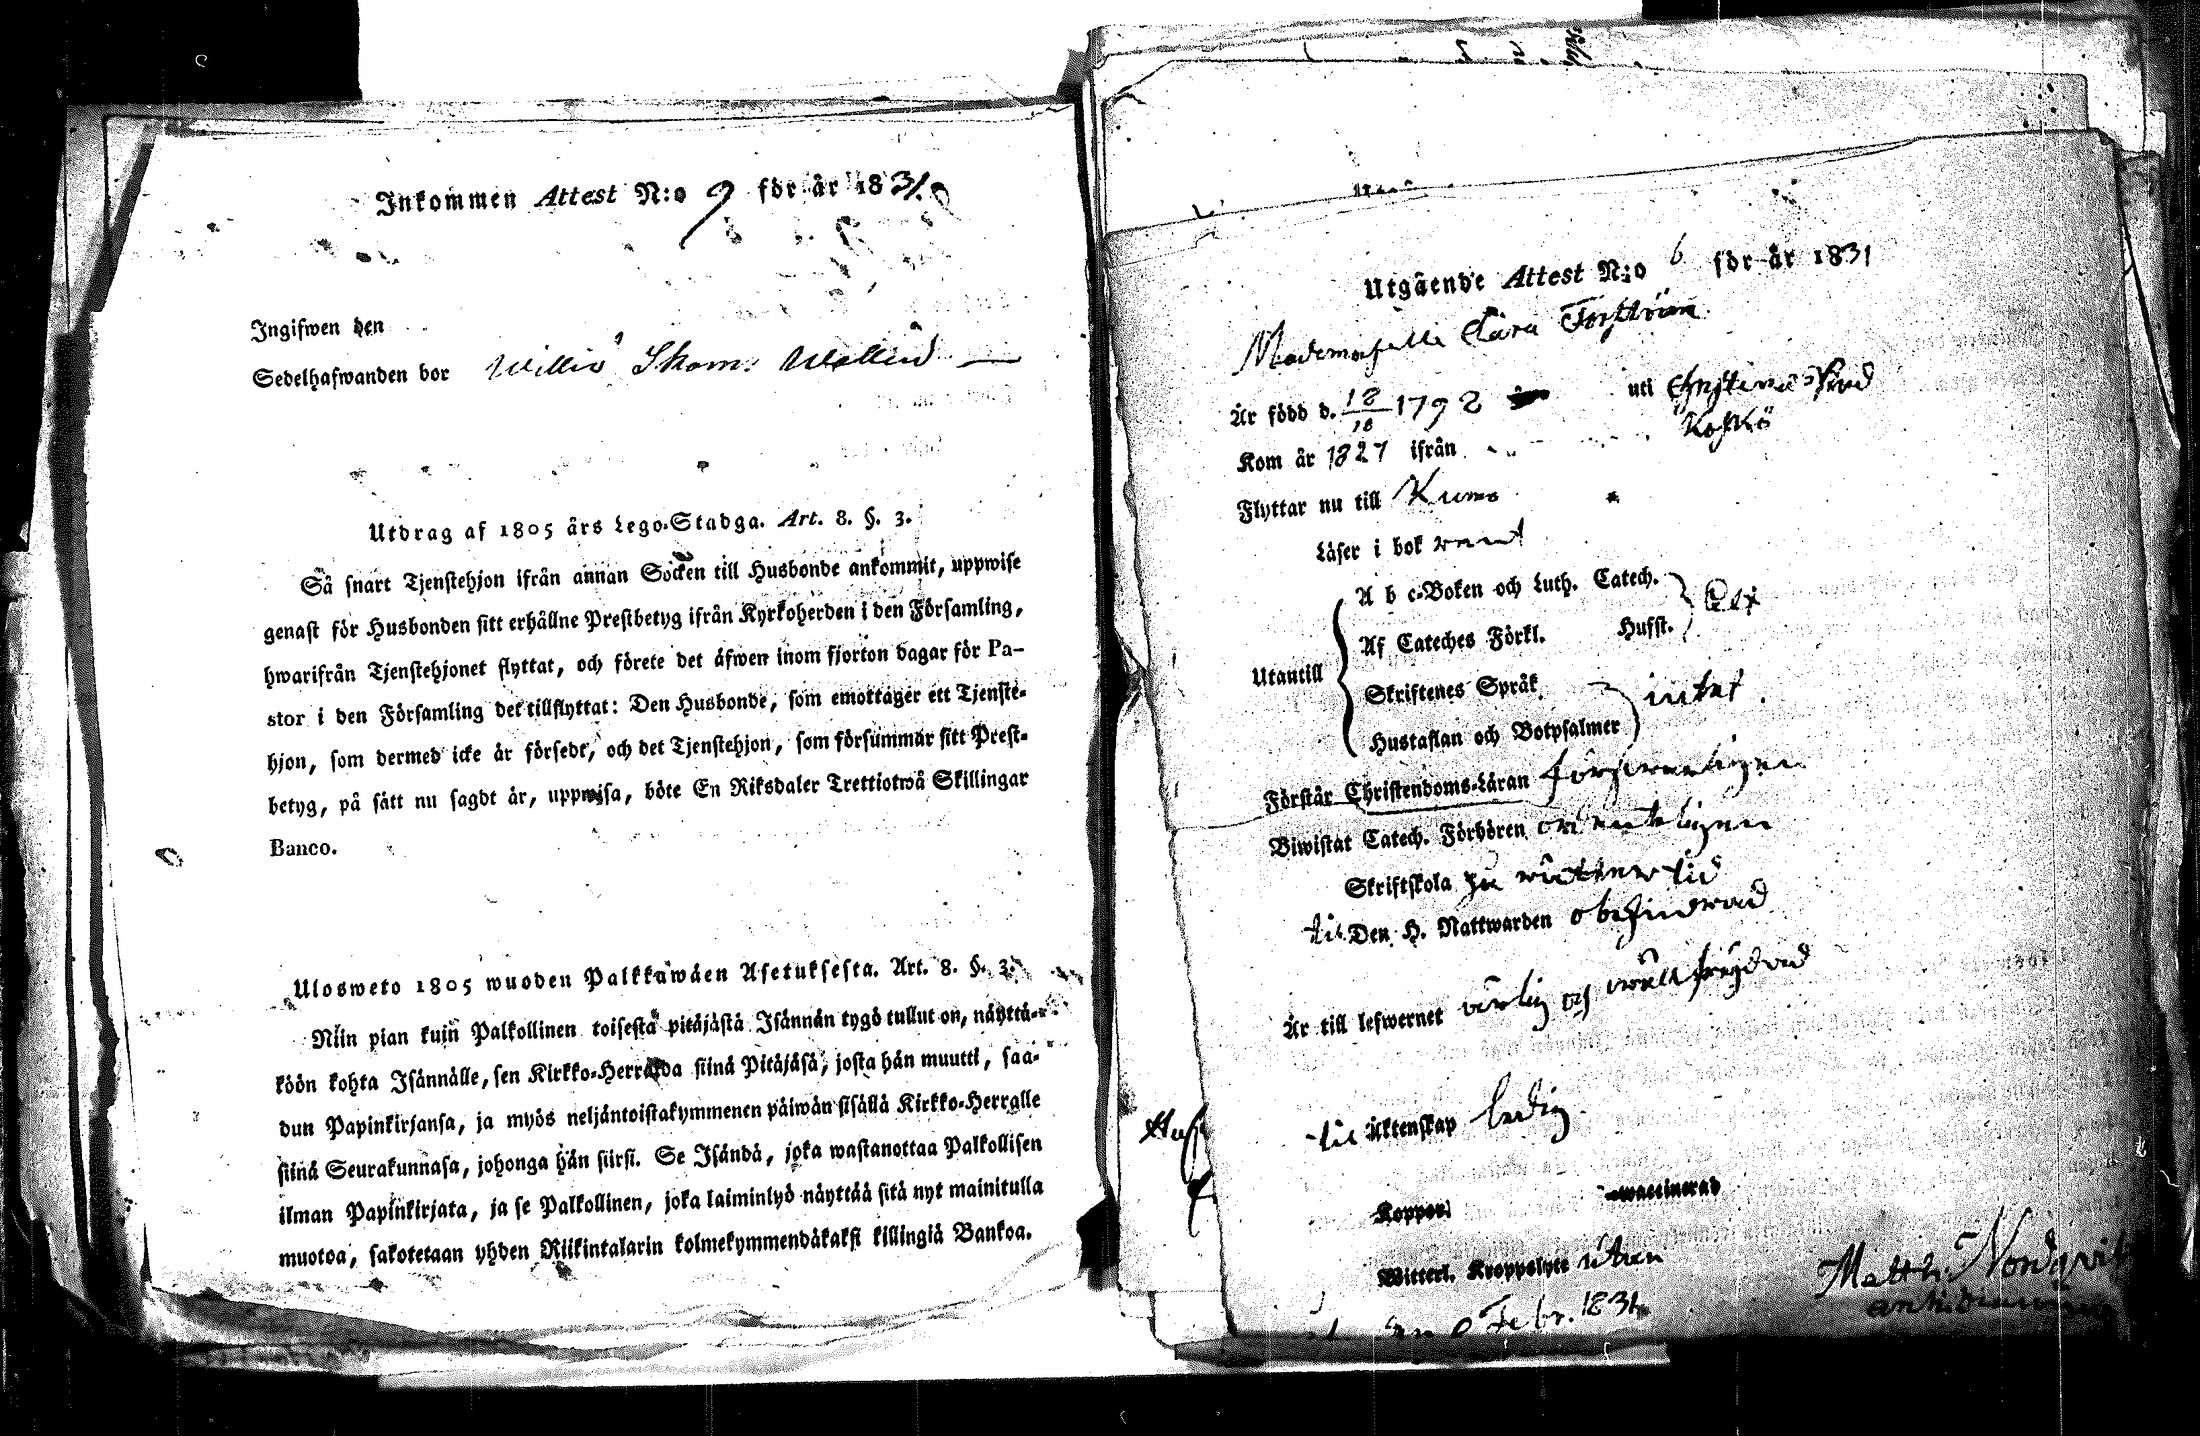 Inkommen Attest N:o 9 för år 1831.
Ingifwen den
Sedelhafwanden bor Willio Skom: Wallin —
Utdrag af 1805 års Lego-Stadga. Art. 8. §. 3.
Så snart Tjenstehjon ifrån annan Socken till Husbonde ankommit, uppwise
genast för Husbonden sitt erhållne Prestbetyg ifrån Kyrkoherden i den Församling,
hwarifrån Tjenstehjonet flyttat, och förete det äfwen inom fjorton dagar för Pa-
stor i den Församling det tillflyttat: Den Husbonde, som emottager ett Tjenste-
hjon, som dermed icke är försedt, och det Tjenstehjon, som försummar sitt Prest-
betyg, på sätt nu sagdt är, uppwisa, böte En Riksdaler Trettiotwå Skillingar
Banco.
Ulosweto 1805 wuoden Palkkawäen Asetuksesta. Art. 8. §. 3.
Niin pian kuin Palkollinen toisesta pitäjästä Isännän tygö tullut on, näyttä-
köön kohta Isännälle, sen Kirkko-Herralda siinä Pitäjäsä, josta hän muutti, saa-
dun Papinkirjansa, ja myös neljäntoistakymmenen päiwän sisällä Kirkko-Herralle
siinä Seurakunnasa, johonga hän siirsi. Se Isändä, joka wastanottaa Palkollisen
ilman Papinkirjata, ja se Palkollinen, joka laiminlyö näyttää sitä nyt mainitulla
muotoa, sakotetaan yhden Riikintalarin kolmekymmendäkaksi killingiä Bankoa.
Utgående Attest N:o 6 för år 1831
Mademoiselle Clara Forsström
Är född d. 18/10 1792 uti Christinæ Stad
Kom år 1827 ifrån Koskö
Flyttar nu till Kumo
Läser i bok rent
A b c-Boken och Luth. Catech.
Af Cateches Förkl. Husst.
Utantill
Skriftenes Språk intet.
Hustaflan och Botpsalmer
Förstår Christendoms-Läran förswarligen
Biwistat Catech. Förhören ordenteligen
Skriftskola i rättan tid
till Den H. Nattwarden obehindrad
Är till lefwernet ärlig och wälfrejdad
till Äktenskap ledig.
Koppor waccinerad
Witterl. Kroppslyte utan
Febr. 1831.
Matth: Nordqvist